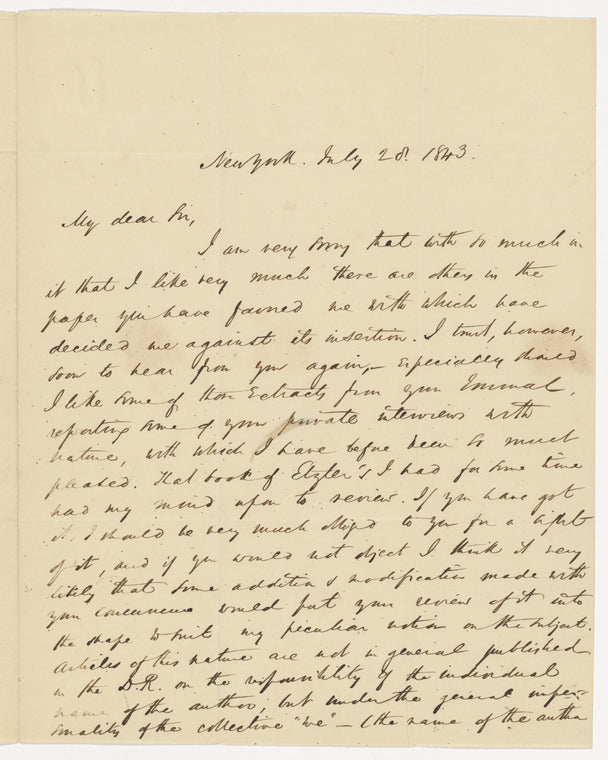 New York. July 28. 1843.
My dear Sir,
I am very sorry that with so much in
it that I like very much there are others in the
paper you have favored me with which have
decided me against its insertion. I trust, however,
soon to hear from you again,— especially should
I like some of those Extracts from your Journal,
reporting some of your private interviews with
nature, with which I have before been so much
pleased. That book of Etzler's I had for some time
had my mind upon to review. If you have got
it, I should be very much obliged to you for a sight
of it, and if you would not object I think it very
likely that some addition & modification made with
your concurrence would put your review of it into
the shape to suit my peculiar notion on the subject.
Articles of this nature are not in general published
in the D.R. on the responsibility of the individual
name of the author, but under the general imper-
sonality of the collective "we" — (the name of the autho